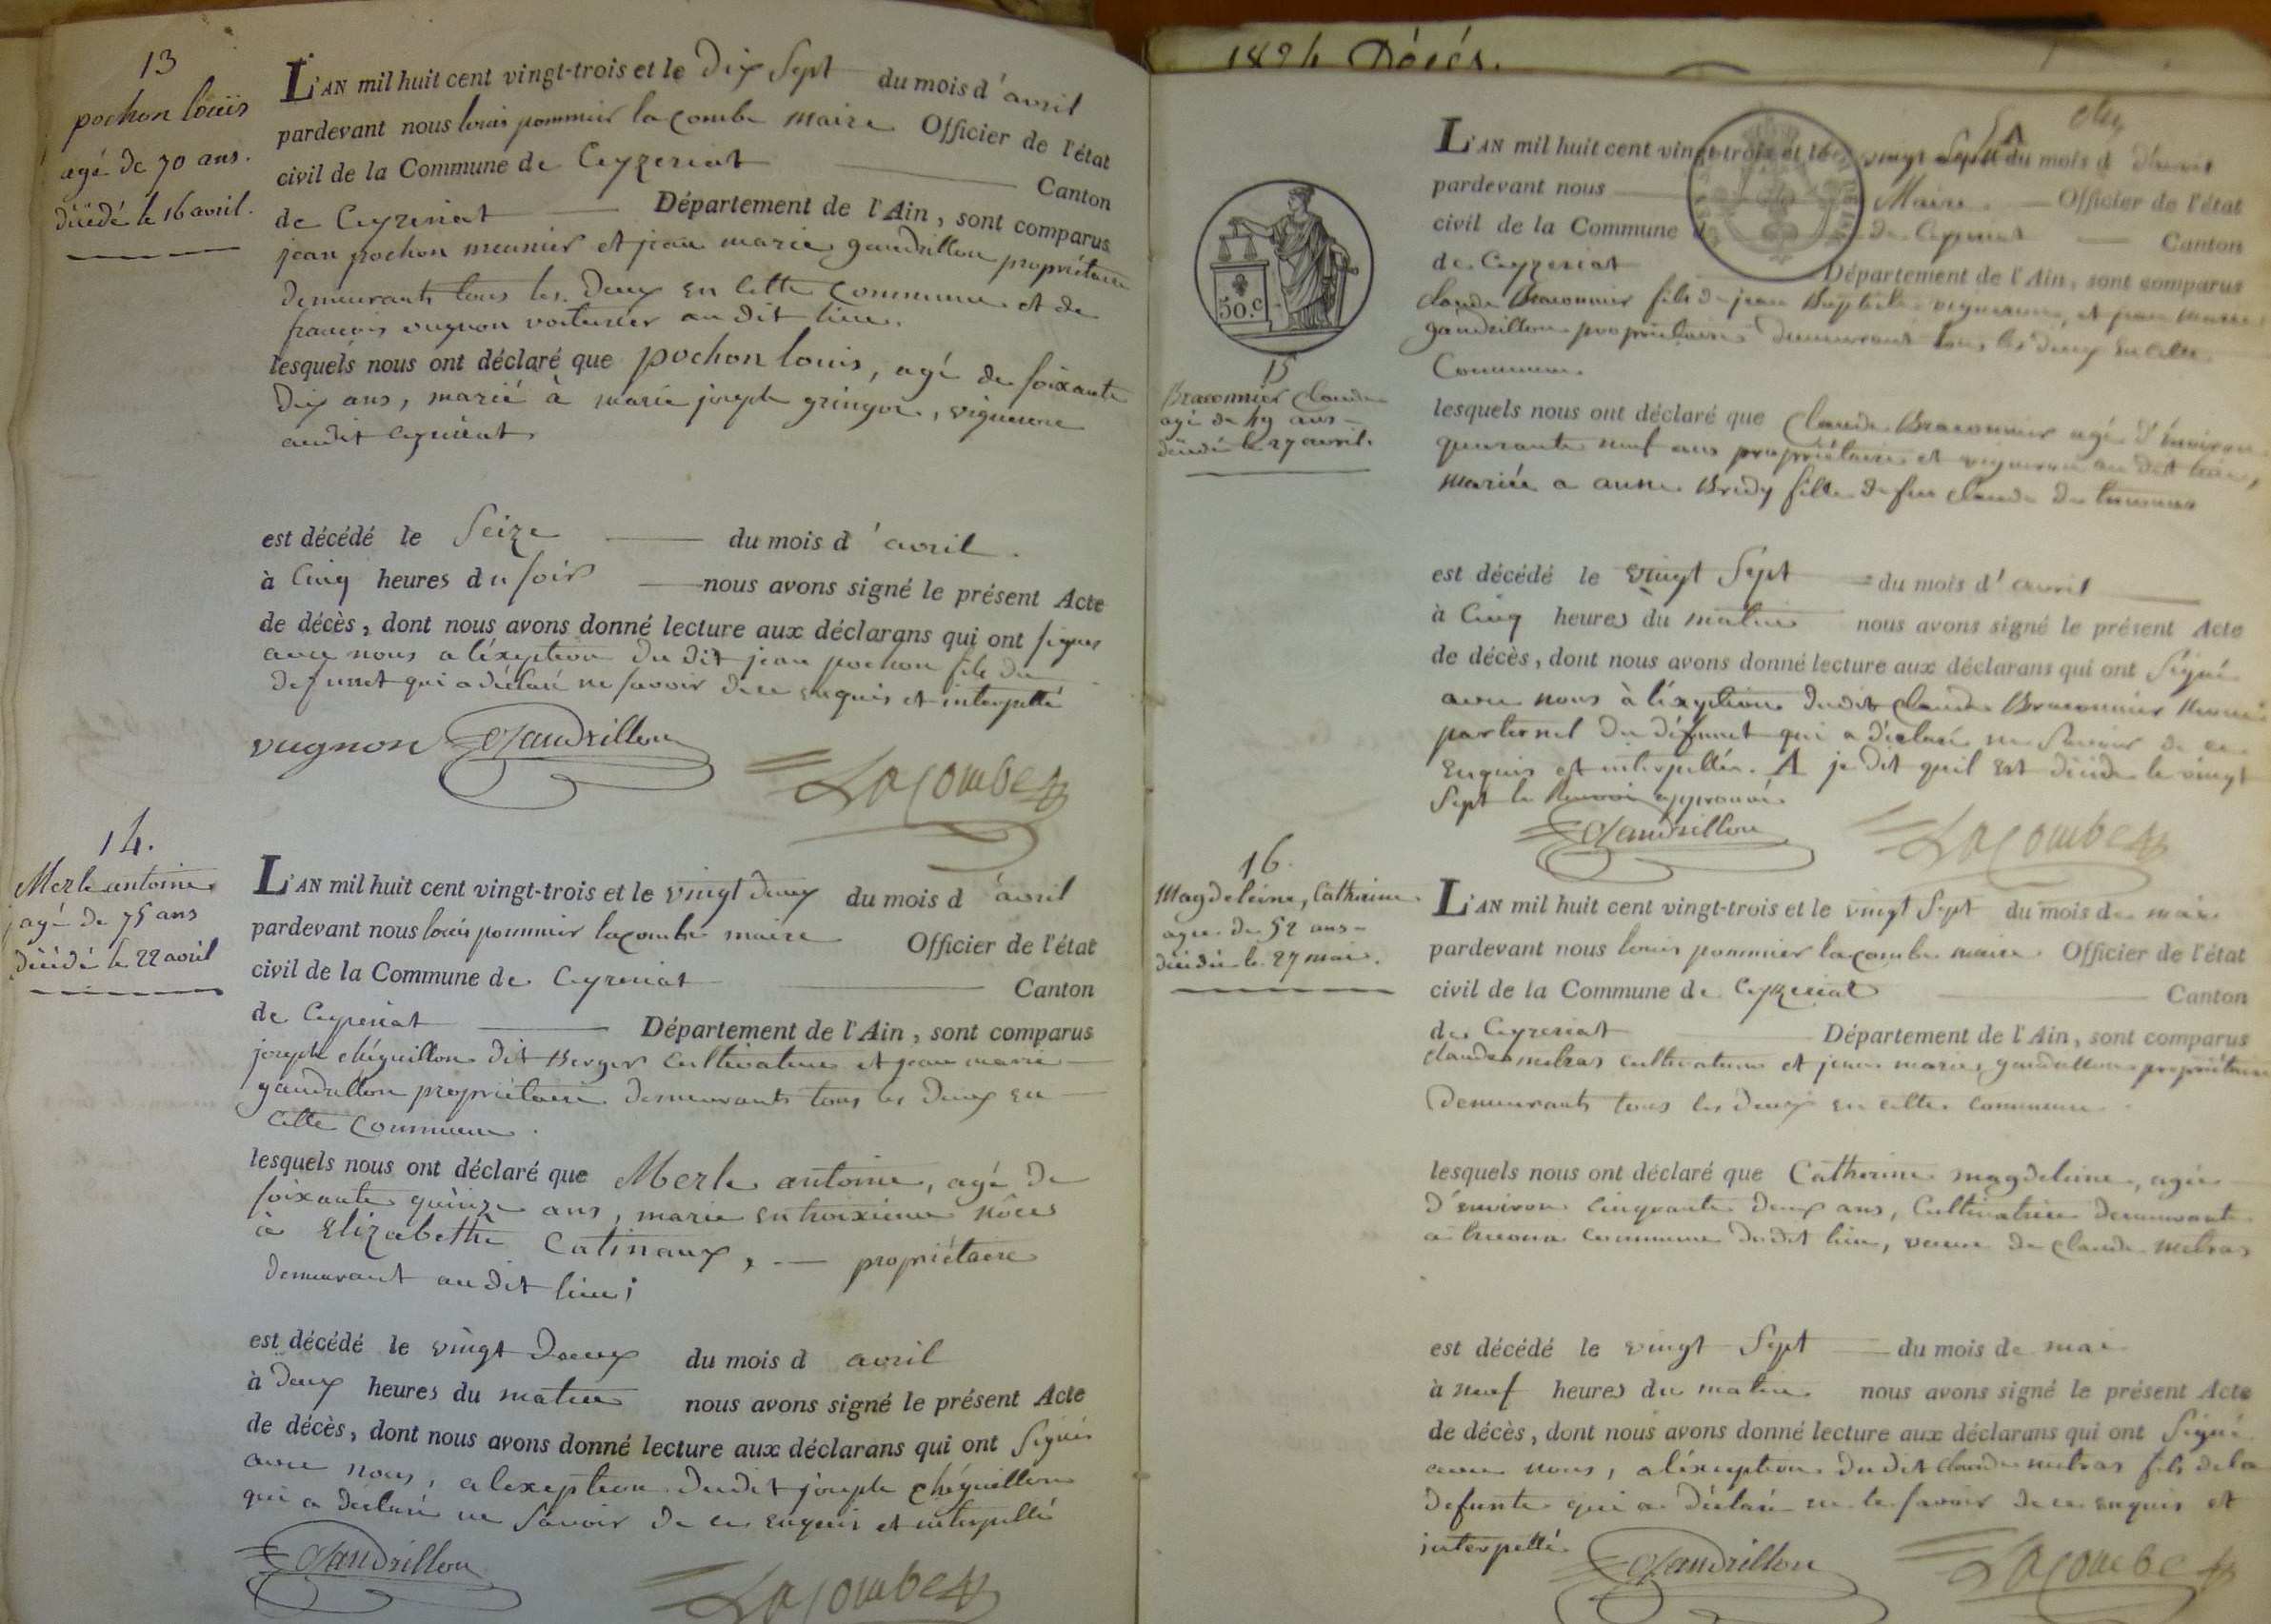 13
pochon louis
agé de 70 ans.
décédé le 16 avril.
L'AN mil huit cent vingt-trois et le Dix Sept du mois d'avril
pardevant nous louis pommier lacombe maire Officier de l'état
civil de la Commune de Ceyzeriat Canton
de Ceyzeriat Département de l'Ain, sont comparus
jean pochon meunier et jean marie gaudrillon propriétaire
demeurants tous les deux en cette commune et de
francois vugnon voiturier au dit lieu.
lesquels nous ont déclaré que pochon louis, agé de soixante
Dix ans, marié à marie joseph gringoz, vigneron
audit ceyzériat
est décédé le Seize du mois d'avril.
à Cinq heures du soir nous avons signé le présent Acte
de décès, dont nous avons donné lecture aux déclarans qui ont signés
avec nous a l'éxception du dit jean pochon fils du
defunct qui a déclaré ne savoir de ce enquis et interpellé
vugnon Gaudrillon
Lacombe
14.
Merle antoine
agé de 75 ans
décédé le 22 avril
L'AN mil huit cent vingt-trois et le vingt deux du mois d'avril
pardevant nous louis pommier lacombe maire Officier de l'état
civil de la Commune de Ceyzeriat Canton
de Ceyzeriat Département de l'Ain, sont comparus
joseph chéguillon dit Berger cultivateur et jean marie
gaudrillon propriétaire demeurants tous les deux en
cette commune.
lesquels nous ont déclaré que Merle antoine, agé de
soixante quinze ans, marie en troixieme nôces
à Elizabethe Catinaux, propriétaire
demeurant au dit lieu;
est décédé le vingt Deux du mois d avril
à Deux heures du matin nous avons signé le présent Acte
de décès, dont nous avons donné lecture aux déclarans qui ont Signés
avec nous, a lexeption dudit joseph chéguillon
qui a déclaré ne Savoir de ce enquis et interpellé
Gaudrillon
Lacombe
1824 Décés.
L'AN mil huit cent vingt-trois et le vingt Sept A du mois d d'avril
pardevant nous Maire Officier de l'état
civil de la Commune de Ceyzeriat Canton
de Ceyzeriat Département de l'Ain, sont comparus
claude Braconnier fils de jean Baptiste vigneron, et jean marie
gaudrillon propriétaire demeurant tous les deux en cette
Commune.
50.C
15
Braconnier Claude
agé de 49 ans
décédé le 27 avril.
lesquels nous ont déclaré que Claude Braconnier agé d'environ
quarante neuf ans propriétaire et vigneron au dit lieu,
mariée a anne Bredy fille de feu claude de
est décédé le vingt Sept du mois d'avril
à Cinq heures du matin nous avons signé le présent Acte
de décès, dont nous avons donné lecture aux déclarans qui ont Signé
avec nous à l'éxception dudit Claude Braconnier
parternel du défunct qui a déclaré ne Savoir de ce
Enquis et interpellée. A je dit quil Est décédé le vingt
Sept le Renvoi approuvé
Gaudrillon
Lacombe
16.
Magdeleine, Catherine
agée de 52 ans
décédée le 27 mai.
L'AN mil huit cent vingt-trois et le vingt Sept du mois de mai
pardevant nous louis pommier lacombe maire Officier de l'état
civil de la Commune de Ceyzeriat Canton
de Ceyzeriat Département de l'Ain, sont comparus
claude mitras cultivateur et jean marie gaudrillon propriétaire
Demeurants tous les deux en cette commune.
lesquels nous ont déclaré que Catherine magdeleine, agée
d'environ cinquante Deux ans, Cultivatrice demeurante
a commune dudit lieu, veuve de claude mitras
est décédé le vingt Sept du mois de mai
à neuf heures du matin nous avons signé le présent Acte
de décès, dont nous avons donné lecture aux déclarans qui ont Signé
avec nous, a léxception du dit claude mitras fils de la
defunte qui a déclaré ne le savoir de ce enquis et
interpellé.
Gaudrillon
Lacombe